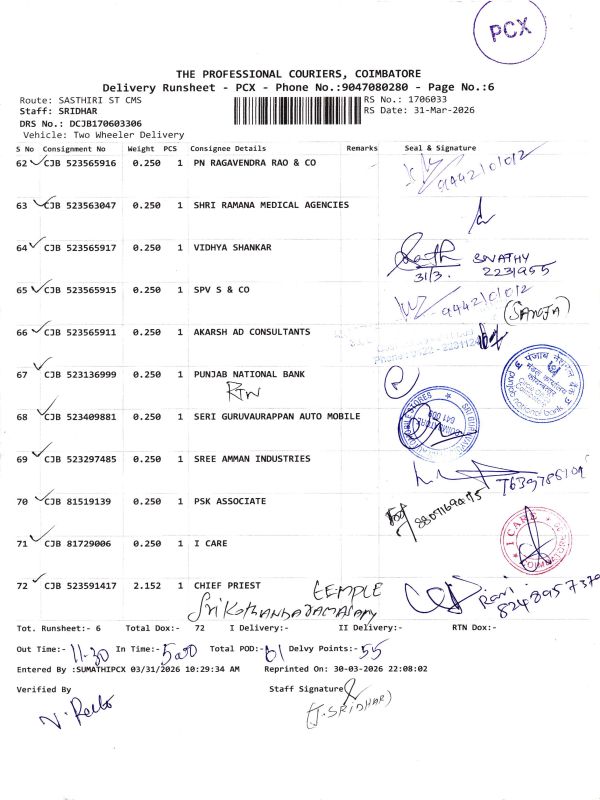 PCX
THE PROFESSIONAL COURIERS, COIMBATORE
Delivery Runsheet - PCX - Phone No.:9047080280 - Page No.:6
Route: SASTHIRI ST CMS RS No.: 1706033
Staff: SRIDHAR RS Date: 31-Mar-2026
DRS No.: DCJB170603306
Vehicle: Two Wheeler Delivery
S No Consignment No Weight PCS Consignee Details Remarks Seal & Signature
62 CJB 523565916 0.250 1 PN RAGAVENDRA RAO & CO
63 CJB 523563047 0.250 1 SHRI RAMANA MEDICAL AGENCIES
64 CJB 523565917 0.250 1 VIDHYA SHANKAR
31/3. 2231955
65 CJB 523565915 0.250 1 SPV S & CO
66 CJB 523565911 0.250 1 AKARSH AD CONSULTANTS
67 CJB 523136999 0.250 1 PUNJAB NATIONAL BANK
punjab national bank
68 CJB 523409881 0.250 1 SERI GURUVAURAPPAN AUTO MOBILE
69 CJB 523297485 0.250 1 SREE AMMAN INDUSTRIES
70 CJB 81519139 0.250 1 PSK ASSOCIATE
71 CJB 81729006 0.250 1 I CARE
I CARE
COIMBATORE
72 CJB 523591417 2.152 1 CHIEF PRIEST TEMPLE
Tot. Runsheet:- 6 Total Dox:- 72 I Delivery:- II Delivery:- RTN Dox:-
Out Time:- 11-30 In Time:- Total POD:- 61 Delvy Points:- 55
Entered By :SUMATHIPCX 03/31/2026 10:29:34 AM Reprinted On: 30-03-2026 22:08:02
Verified By Staff Signature
(J. SRIDHAR)